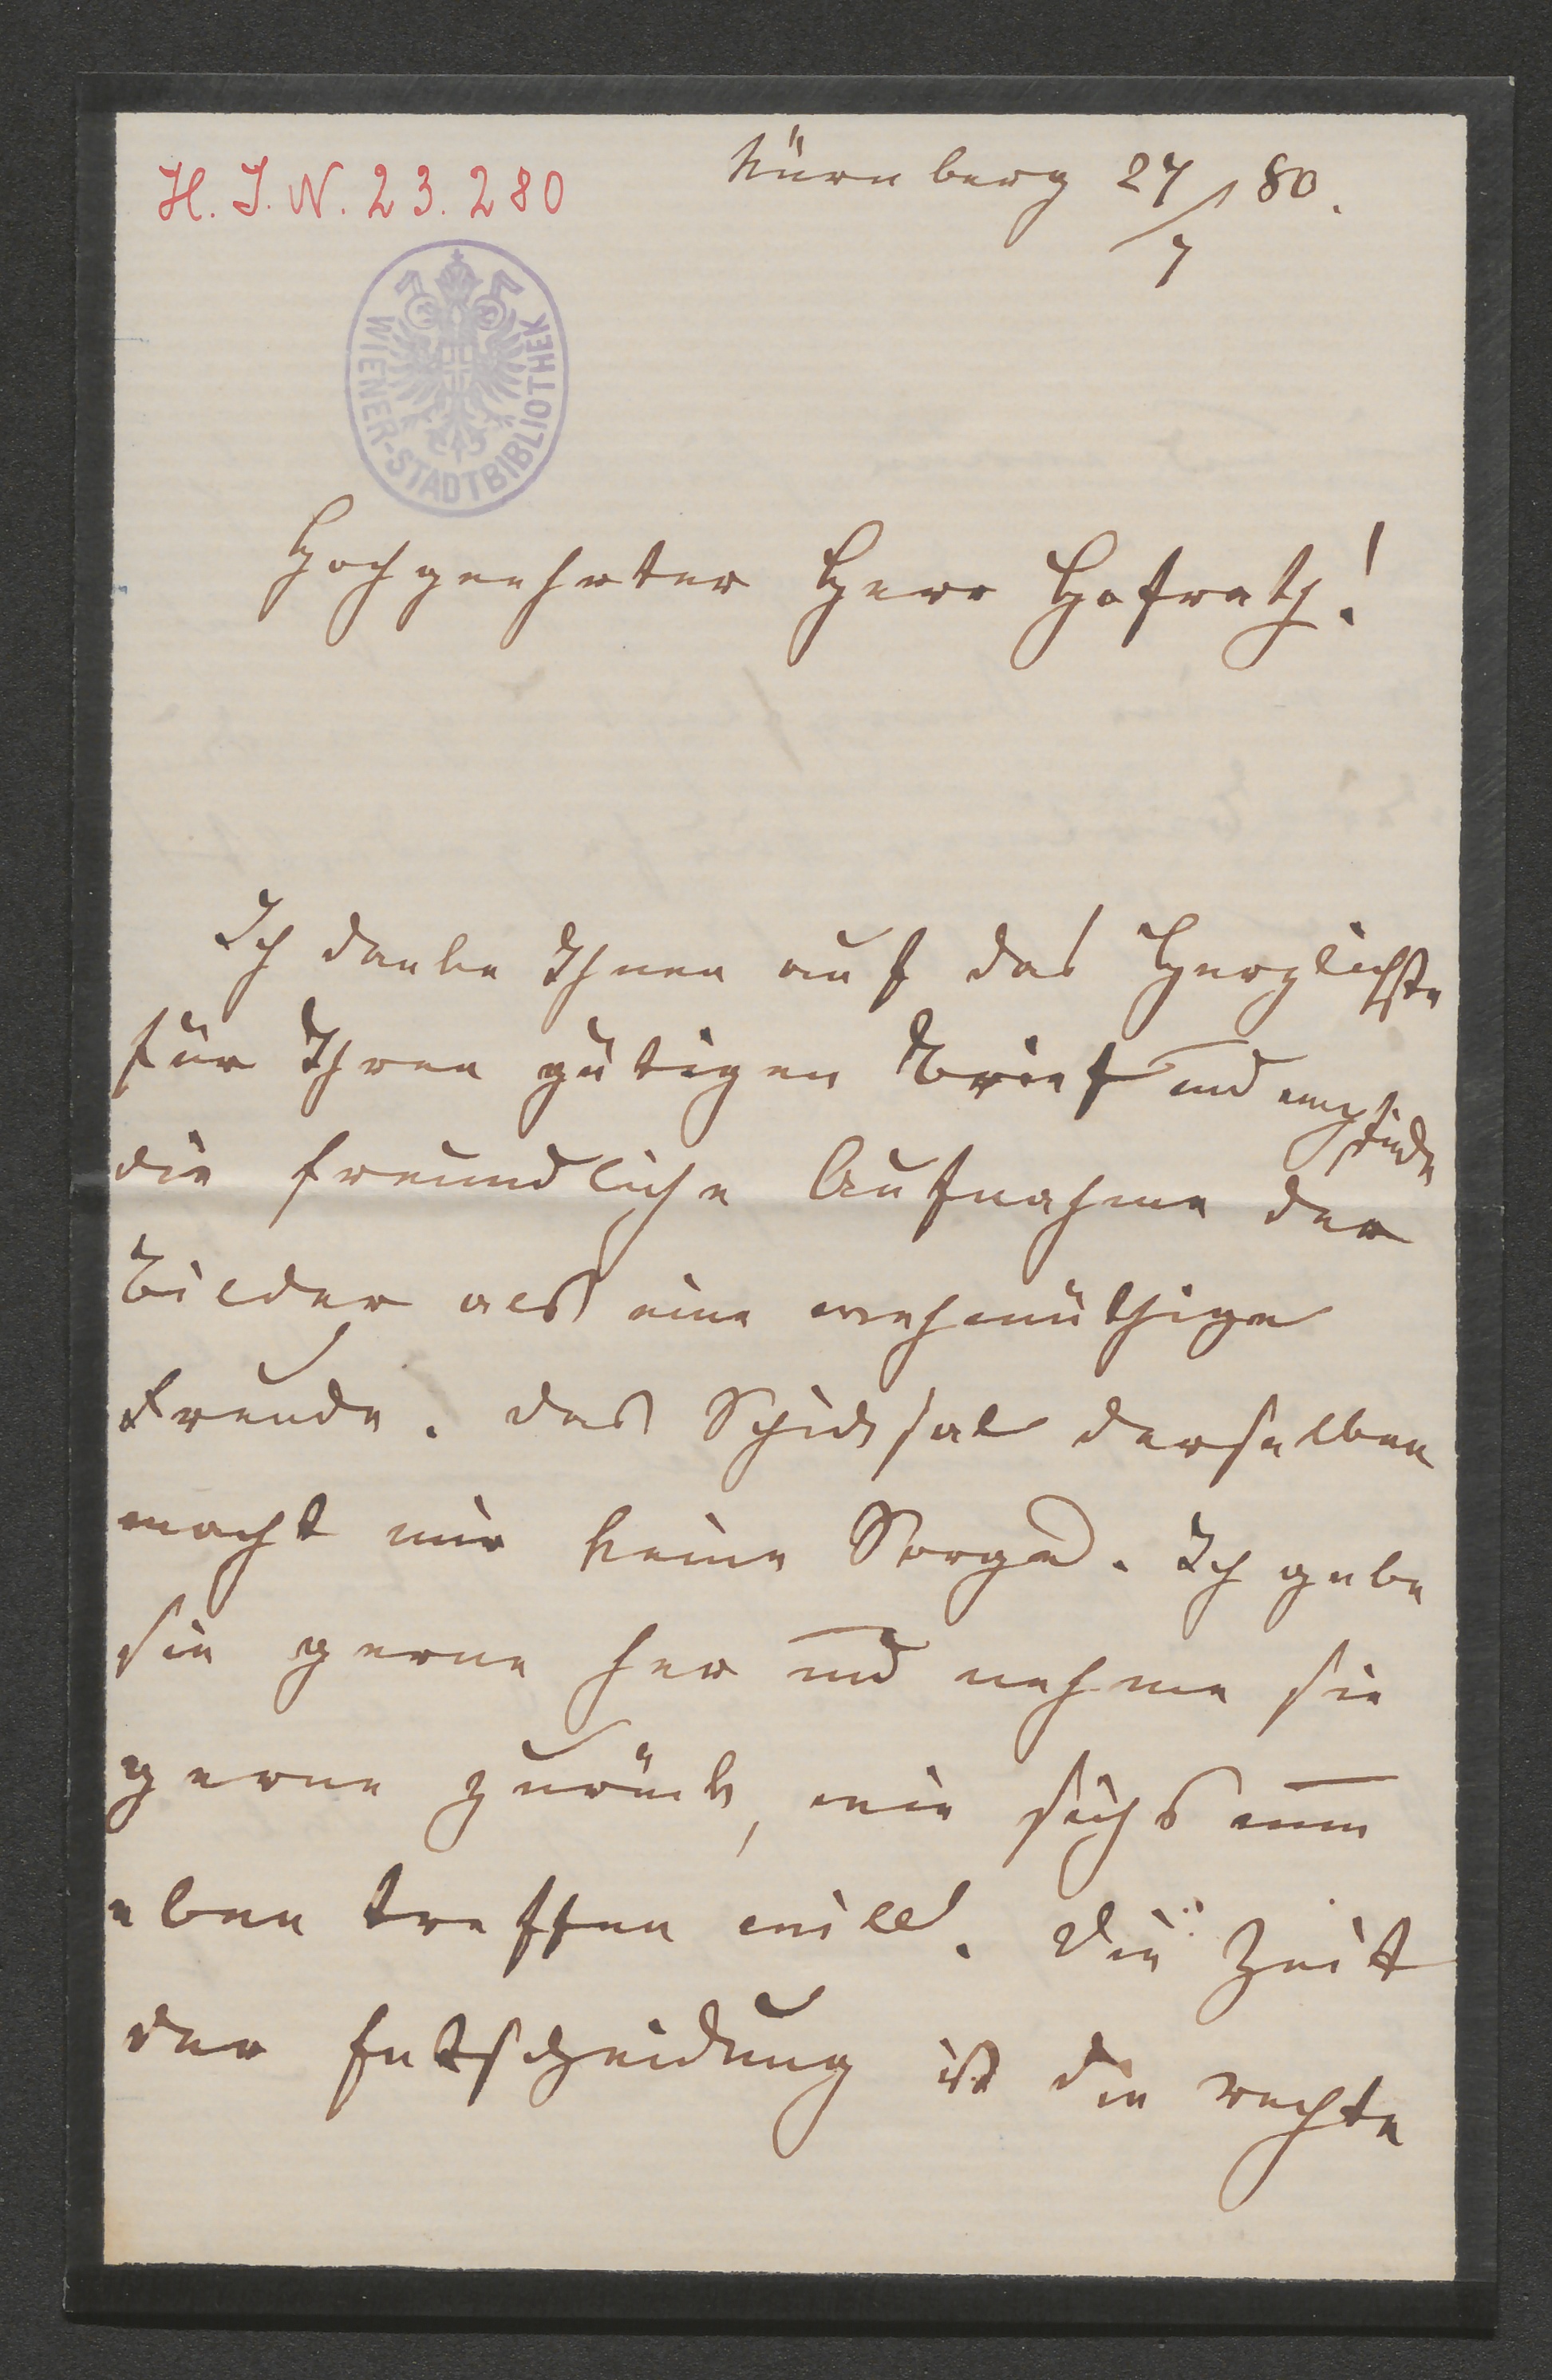 H. I. N. 23.280
Nürnberg 27/7 80.
WIENER-STADTBIBLIOTHEK
Hochgeehrter Herr Hofrath!
Ich danke Ihnen auf das Herzlichste
für Ihren gütigen Brief und empfinde
die freundliche Aufnahme der
Bilder als eine wehmüthige
Freude. Das Schicksal derselben
macht mir keine Sorge. Ich gebe
sie gerne her und nehme sie
gerne zurück, wie sichs nun
eben treffen will. Die Zeit
der Entscheidung ist die rechte